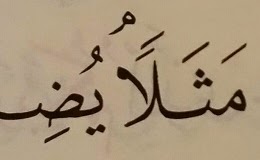 مَثَلًا يُضِ